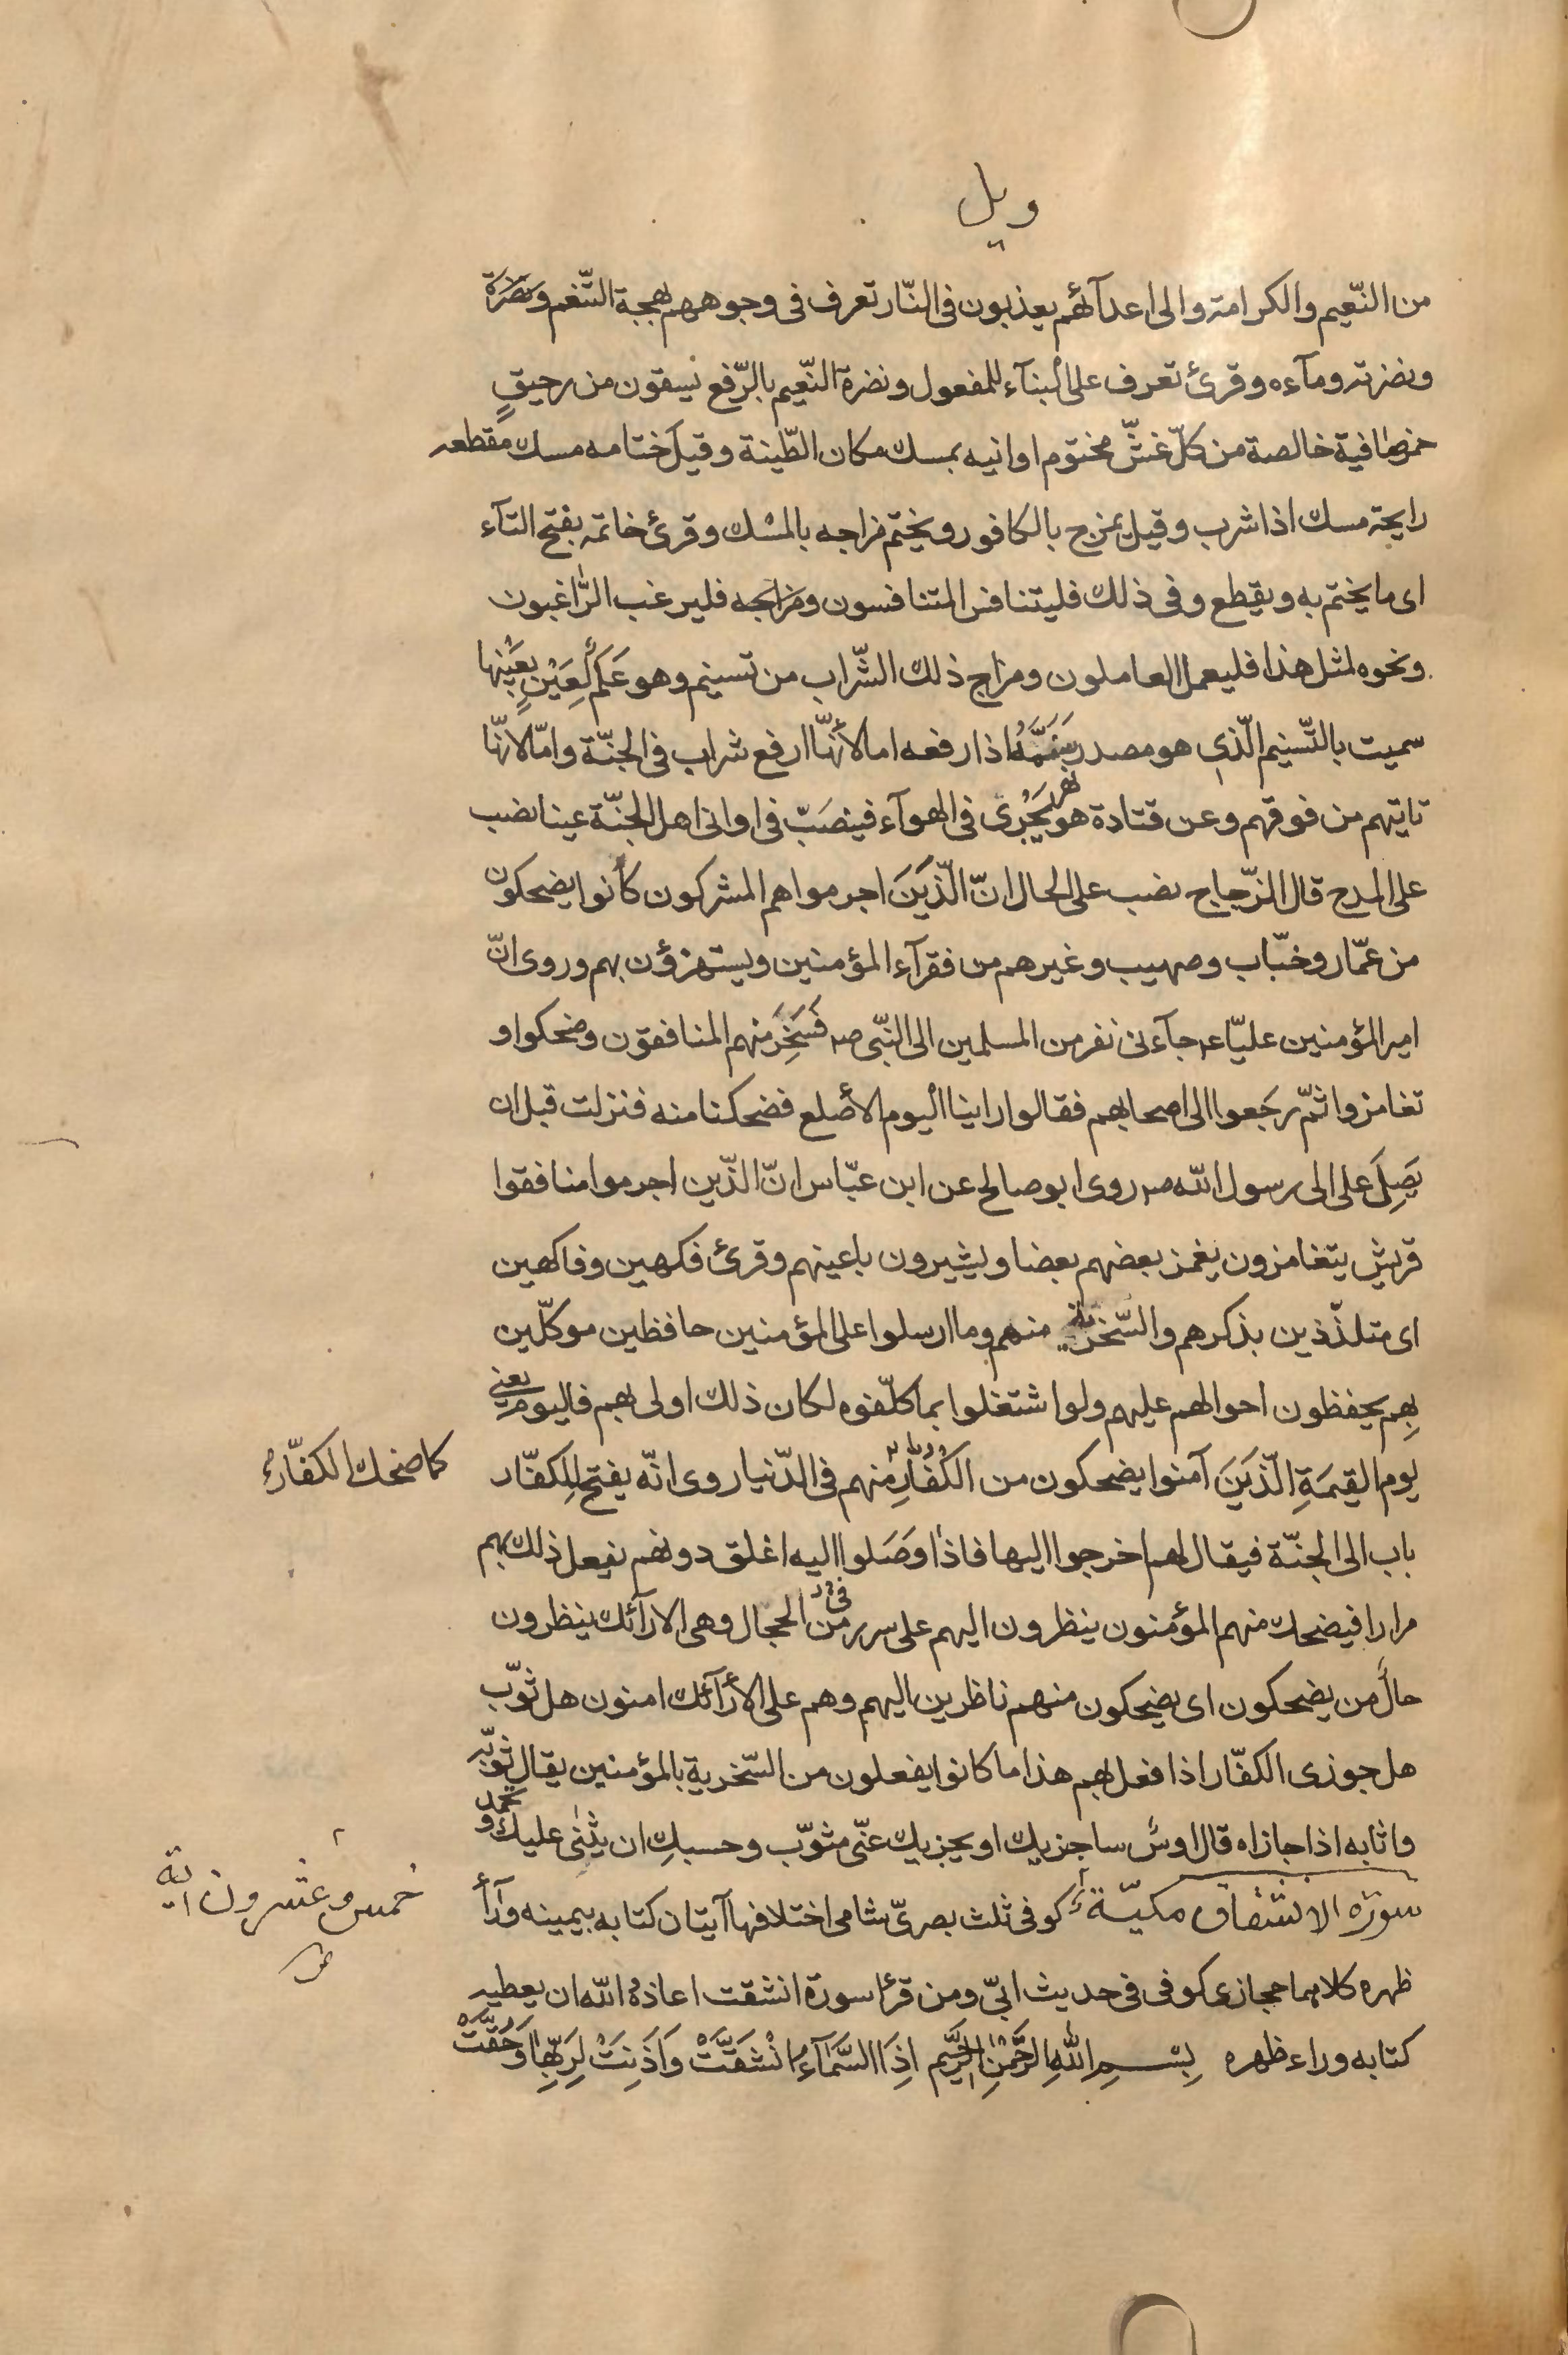 ويل
من النّعيم والكرامة والى اعدآئهم يعذبون فى النّار تعرف فى وجوههم بهجة التّنعّم ونضرة
ونضرته ومآءه وقرئ تعرف على البنآء للمفعول ونضرة النّعيم بالرّفع يسقون من رحيقٍ
خمر صافية خالصة من كلّ غشّ مختوم اوانيه بمسك مكان الطّينة وقيل ختامه مسك مقطعه
رايحة مسك اذا شرب وقيل يمزج بالكافور ويختم مزاجه بالمسك وقرئ خاتمه بفتح التآء
اى ما يختم به ويقطع وفى ذلك فليتنافس المتنافسون ومزاجه فليرغب الرّاغبون
ونحوه لمثل هذا فليعمل العاملون ومزاج ذلك الشّراب من تسنيم وهو عَلَم لِعَيْنٍ بعَيْنِها
سميت بالتّسنيم الّذى هو مصدر سَنَّمَهُ اذا رفعه اما لأنّها ارفع شراب فى الجنّة وامّا لانّها
تاتيهم من فوقهم وعن قتادة هو نهر يَجْرى فى الهوآء فينصَبّ فى اوانى اهل الجنّة عينا نصب
على المدح قال الزّجاج نصب على الحال انّ الّذينَ اجرموا هم المشركون كانوا يضحكون
من عمّار وخبّاب وصهيب وغيرهم من فقرآء المؤمنين ويستهزؤن بهم وروى انّ
امير المؤمنين عليّا ع جآء فى نفر من المسلمين الى النّبى ص فَسَخِرَ منهم المنافقون وضحكوا و
تغامزوا ثمّ رجَعوا الى اصحابهم فقالوا راينا اليوم الأصلع فضحكنا منه فنزلت قبل ان
يَصِلَ على الى رسول اللّه ص روى ابو صالح عن ابن عبّاس انّ الّذين اجرموا منافقوا
قريش يتغامزون يغمز بعضهم بعضا ويشيرون باعينهم وقرئ فكهين وفاكهين
اى متلذّذين بذكرهم والسّخرية منهم وما ارسلوا على المؤمنين حافظين موكّلين
بِهِم يحفظون احوالهم عليهم ولو اشتغلوا بما كلّفوه لكان ذلك اولى بهم فاليوم يعنى
يوم القيمَةِ الّذينَ آمنوا يضحكون من الكُفّارِ منهم فى الدّنيا روى انّه يفتح للكفّار
كما ضحك الكفّارُ
باب الى الجنّة فيقال لهم اخرجوا اليها فاذا وَصَلوا اليه اغلق دونهم يفعل ذلك بهم
مرارا فيضحك منهم المؤمنون ينظرون اليهم على سرر من فى الحجال وهى الارآئك ينظرون
حالٌ من يضحكون اى يضحكون منهم ناظرين اليهم وهم على الأرآئك امنون هل ثوّب
هل جوزى الكفّار اذا فعل بهم هذا ما كانوا يفعلون من السّخرية بالمؤمنين يقال ثوّبه
واثابه اذا جازاه قال اوسٌ ساجزيك او يجزيك عنّى مثوّب وحسبكِ ان يثنى عليك وتحمد
سورة الانشقاق مكيّة كوفى ثلث بصرىّ شامى اختلافها آيتان كتابه بيمينه ورآء
خمس وعشرون اية
ظهره كلاهما حجازى كوفى فى حديث ابىّ ومن قرا سورة انشقت اعاذهُ اللّه ان يعطيه
كتابه وراء ظهره بِسْمِ اللّهِ الرَّحْمنِ الرَّحيمِ اِذَا السَّمآءُ انْشَقَّتْ وَاَذِنَتْ لِرَبِّها وَحُقَّتْ